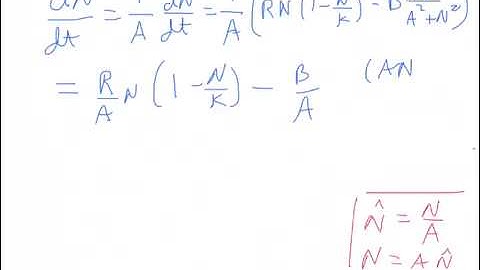 dN̂/dt = 1/A dN/dt = 1/A (RN (1 - N/K) - B N²/(A²+N²))
= R/A N (1 - N/K) - B/A (AN
N̂ = N/A
N = A N̂